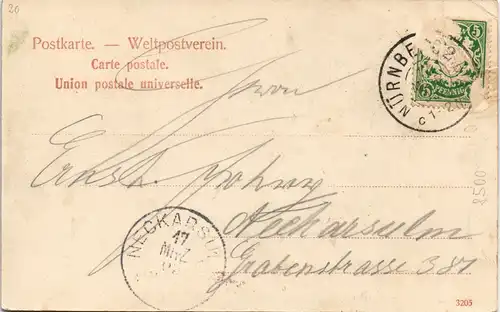 20
Postkarte. — Weltpostverein.
Carte postale.
Union postale universelle.
NÜRNBE
5
5
PFENNIG
Herrn
Ernst
Neckarsulm
Grabenstrasse 381
NECKARSUL
17
MRZ
8500
3205